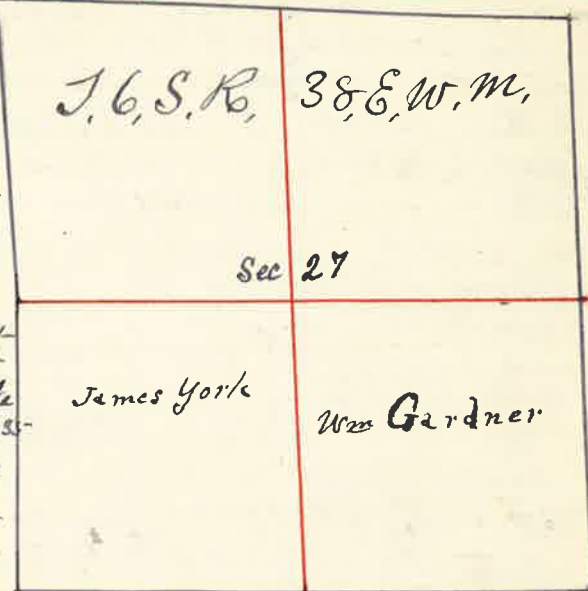 T. 6, S. R, 38, E, W. M,
Sec 27
James York
Wm Gardner